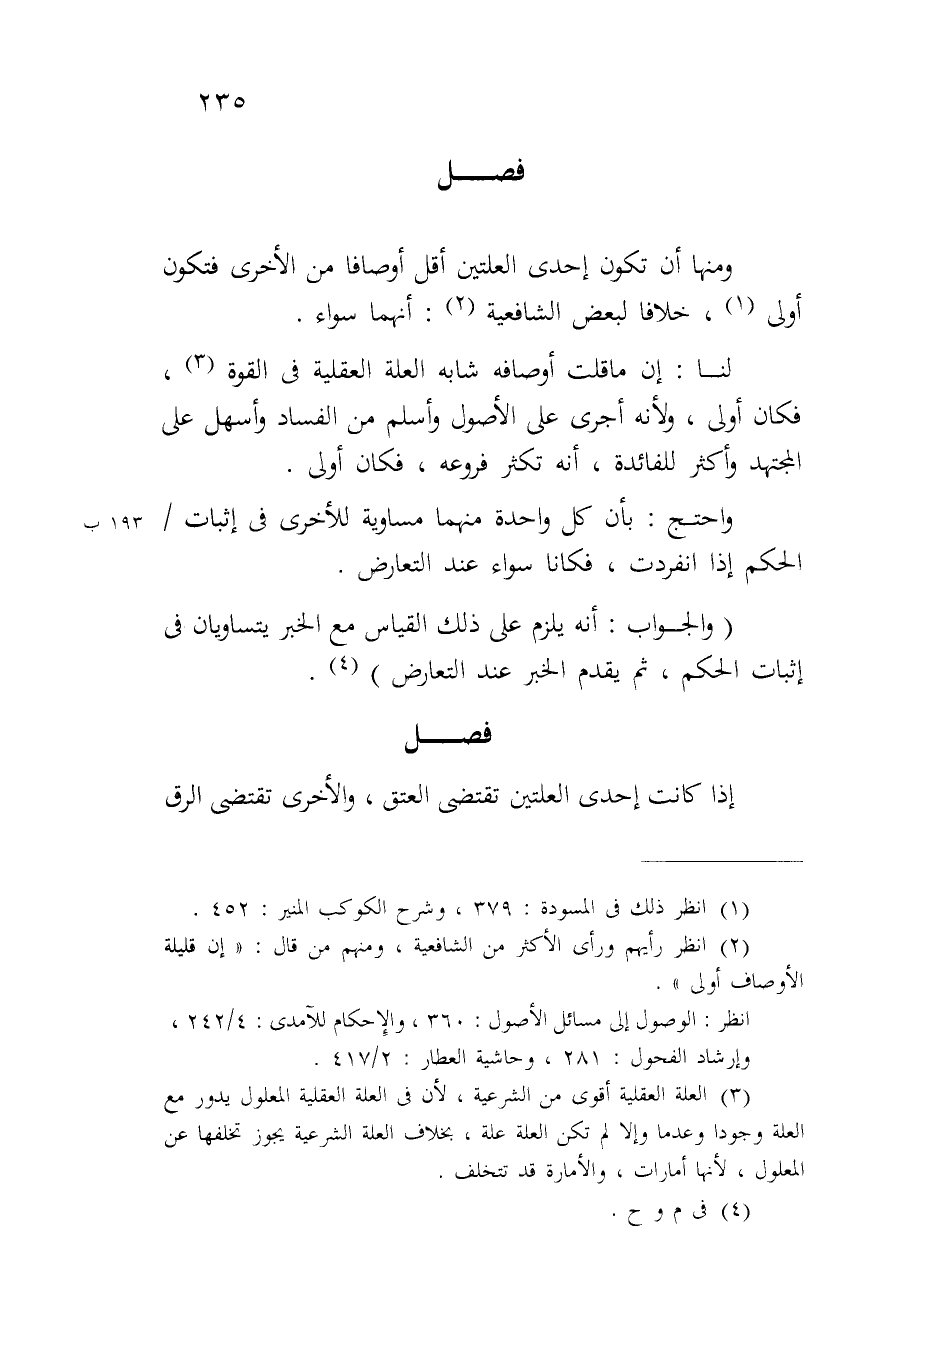 ٢٣٥
فصــــل
ومنها أن تكون إحدى العلتين أقل أوصافا من الأخرى فتكون
أولى (١) ، خلافا لبعض الشافعية (٢) : أنهما سواء .
لنــا : إن ماقلت أوصافه شابه العلة العقلية فى القوة (٣) ،
فكان أولى ، ولأنه أجرى على الأصول وأسلم من الفساد وأسهل على
المجتهد وأكثر للفائدة ، أنه تكثر فروعه ، فكان أولى .
واحتـج : بأن كل واحدة منهما مساوية للأخرى فى إثبات / ١٩٣ ب
الحكم إذا انفردت ، فكانا سواء عند التعارض .
( والجــواب : أنه يلزم على ذلك القياس مع الخبر يتساويان فى
إثبات الحكم ، ثم يقدم الخبر عند التعارض ) (٤) .
فصــــل
إذا كانت إحدى العلتين تقتضى العتق ، والأخرى تقتضى الرق
(١) انظر ذلك فى المسودة : ٣٧٩ ، وشرح الكوكب المنير : ٤٥٢ .
(٢) انظر رأيهم ورأى الأكثر من الشافعية ، ومنهم من قال : « إن قليلة
الأوصاف أولى » .
انظر : الوصول إلى مسائل الأصول : ٣٦٠ ، والإحكام للآمدى : ٢٤٢/٤ ،
وإرشاد الفحول : ٢٨١ ، وحاشية العطار : ٤١٧/٢ .
(٣) العلة العقلية أقوى من الشرعية ، لأن فى العلة العقلية المعلول يدور مع
العلة وجودا وعدما وإلا لم تكن العلة علة ، بخلاف العلة الشرعية يجوز تخلفها عن
المعلول ، لأنها أمارات ، والأمارة قد تتخلف .
(٤) فى م و ح .